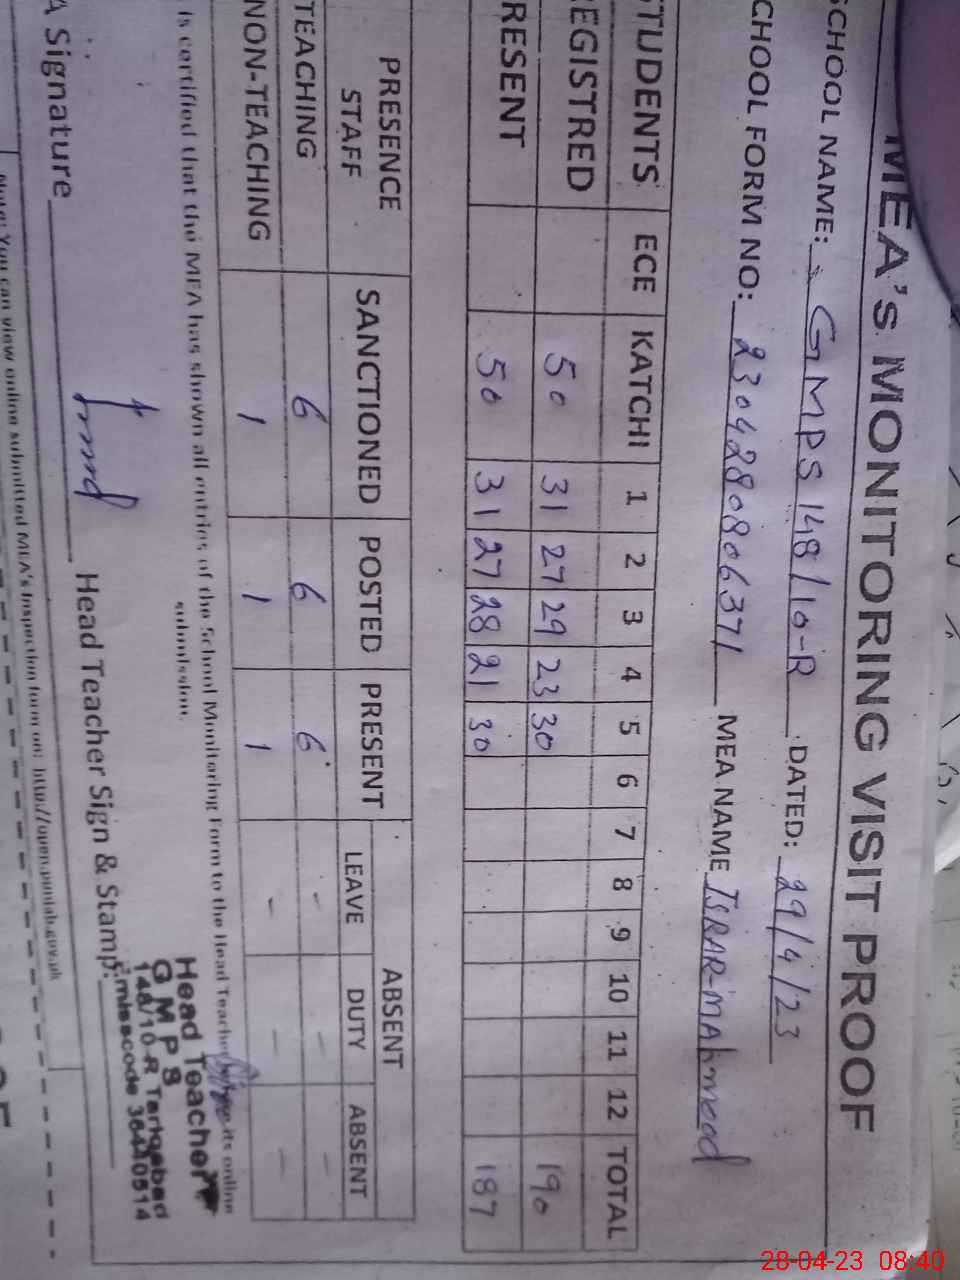 MEA's MONITORING VISIT PROOF
SCHOOL NAME: GMPS 148/10-R DATED: 29/4/23
CHOOL FORM NO: 2304280806371 MEA NAME ISRAR-MAhmood
STUDENTS ECE KATCHI 1 2 3 4 5 6 7 8 9 10 11 12 TOTAL
REGISTRED 50 31 27 29 23 30 190
RESENT 50 31 27 28 21 30 187
PRESENCE STAFF SANCTIONED POSTED PRESENT ABSENT
LEAVE DUTY ABSENT
TEACHING 6 6 6 - - -
NON-TEACHING 1 1 1 - - -
is certified that the MEA has shown all entries of the School Monitoring Form to the Head Teacher its online
submission.
A Signature Head Teacher Sign & Stamp:
Head Teacher
G M P S
148/10-R Tariqabad
Note: You can view online submitted MEA's Inspection form on: http://open.punjab.gov.pk
28-04-23 08:40